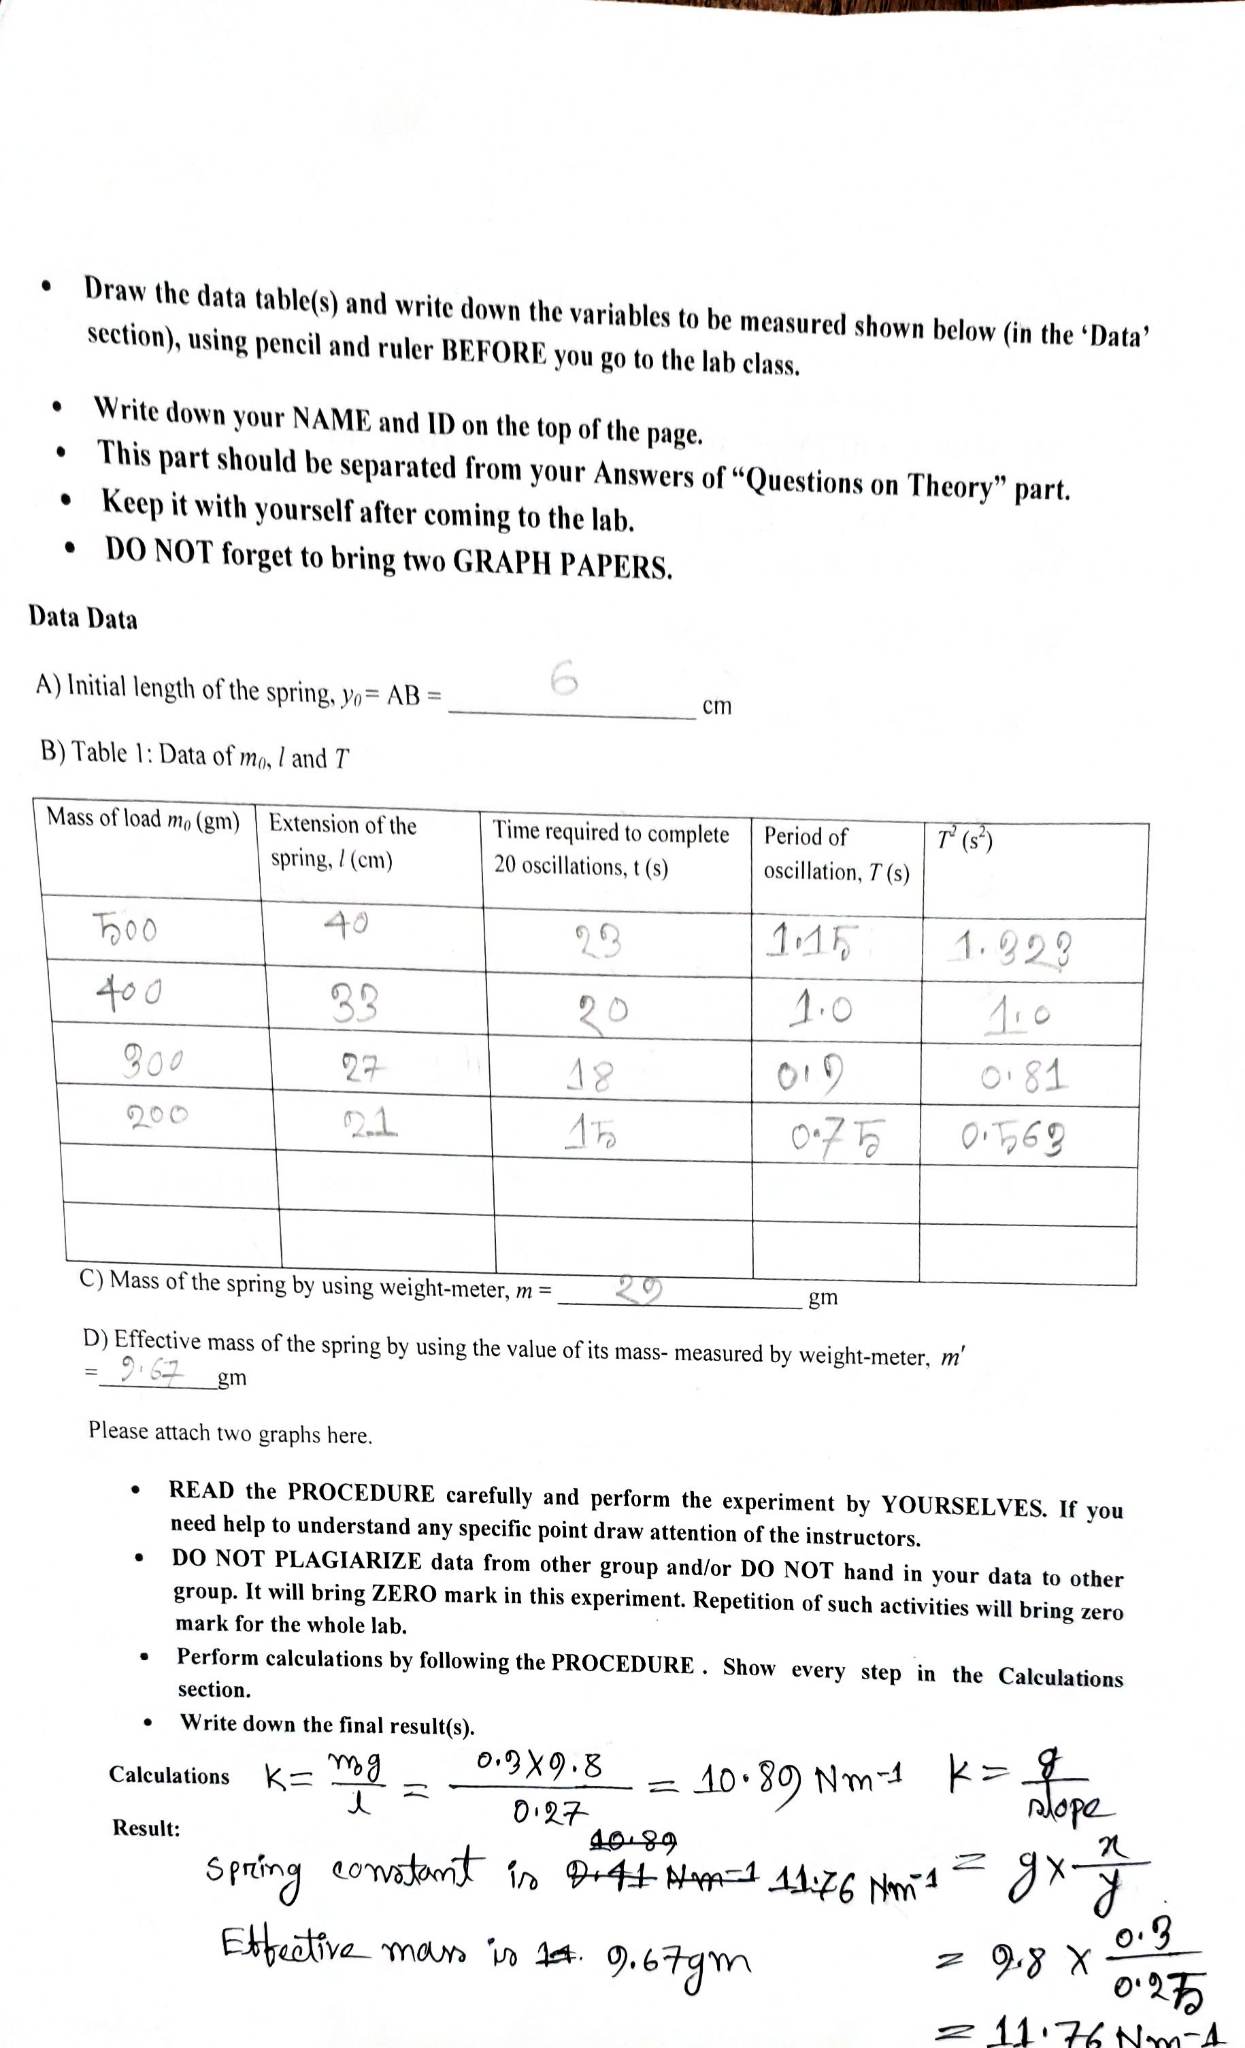 • Draw the data table(s) and write down the variables to be measured shown below (in the ‘Data’
section), using pencil and ruler BEFORE you go to the lab class.
• Write down your NAME and ID on the top of the page.
• This part should be separated from your Answers of “Questions on Theory” part.
• Keep it with yourself after coming to the lab.
• DO NOT forget to bring two GRAPH PAPERS.
Data Data
A) Initial length of the spring, y₀= AB = 6 cm
B) Table 1: Data of m₀, l and T
Mass of load m₀ (gm) Extension of the spring, l (cm) Time required to complete 20 oscillations, t (s) Period of oscillation, T (s) T² (s²)
500 40 23 1.15 1.323
400 33 20 1.0 1.0
300 27 18 0.9 0.81
200 21 15 0.75 0.563
C) Mass of the spring by using weight-meter, m = 29 gm
D) Effective mass of the spring by using the value of its mass- measured by weight-meter, m′
= 9.67 gm
Please attach two graphs here.
• READ the PROCEDURE carefully and perform the experiment by YOURSELVES. If you
need help to understand any specific point draw attention of the instructors.
• DO NOT PLAGIARIZE data from other group and/or DO NOT hand in your data to other
group. It will bring ZERO mark in this experiment. Repetition of such activities will bring zero
mark for the whole lab.
• Perform calculations by following the PROCEDURE . Show every step in the Calculations
section.
• Write down the final result(s).
Calculations K = m₀g / l = 0.3×9.8 / 0.27 = 10.89 Nm-1 K = g / slope
Result:
10.89
spring constant is 9.41 Nm-1 11.76 Nm-1 = g× x / y
Effective mass is 14. 9.67gm = 9.8 × 0.3 / 0.25
= 11.76 Nm-1